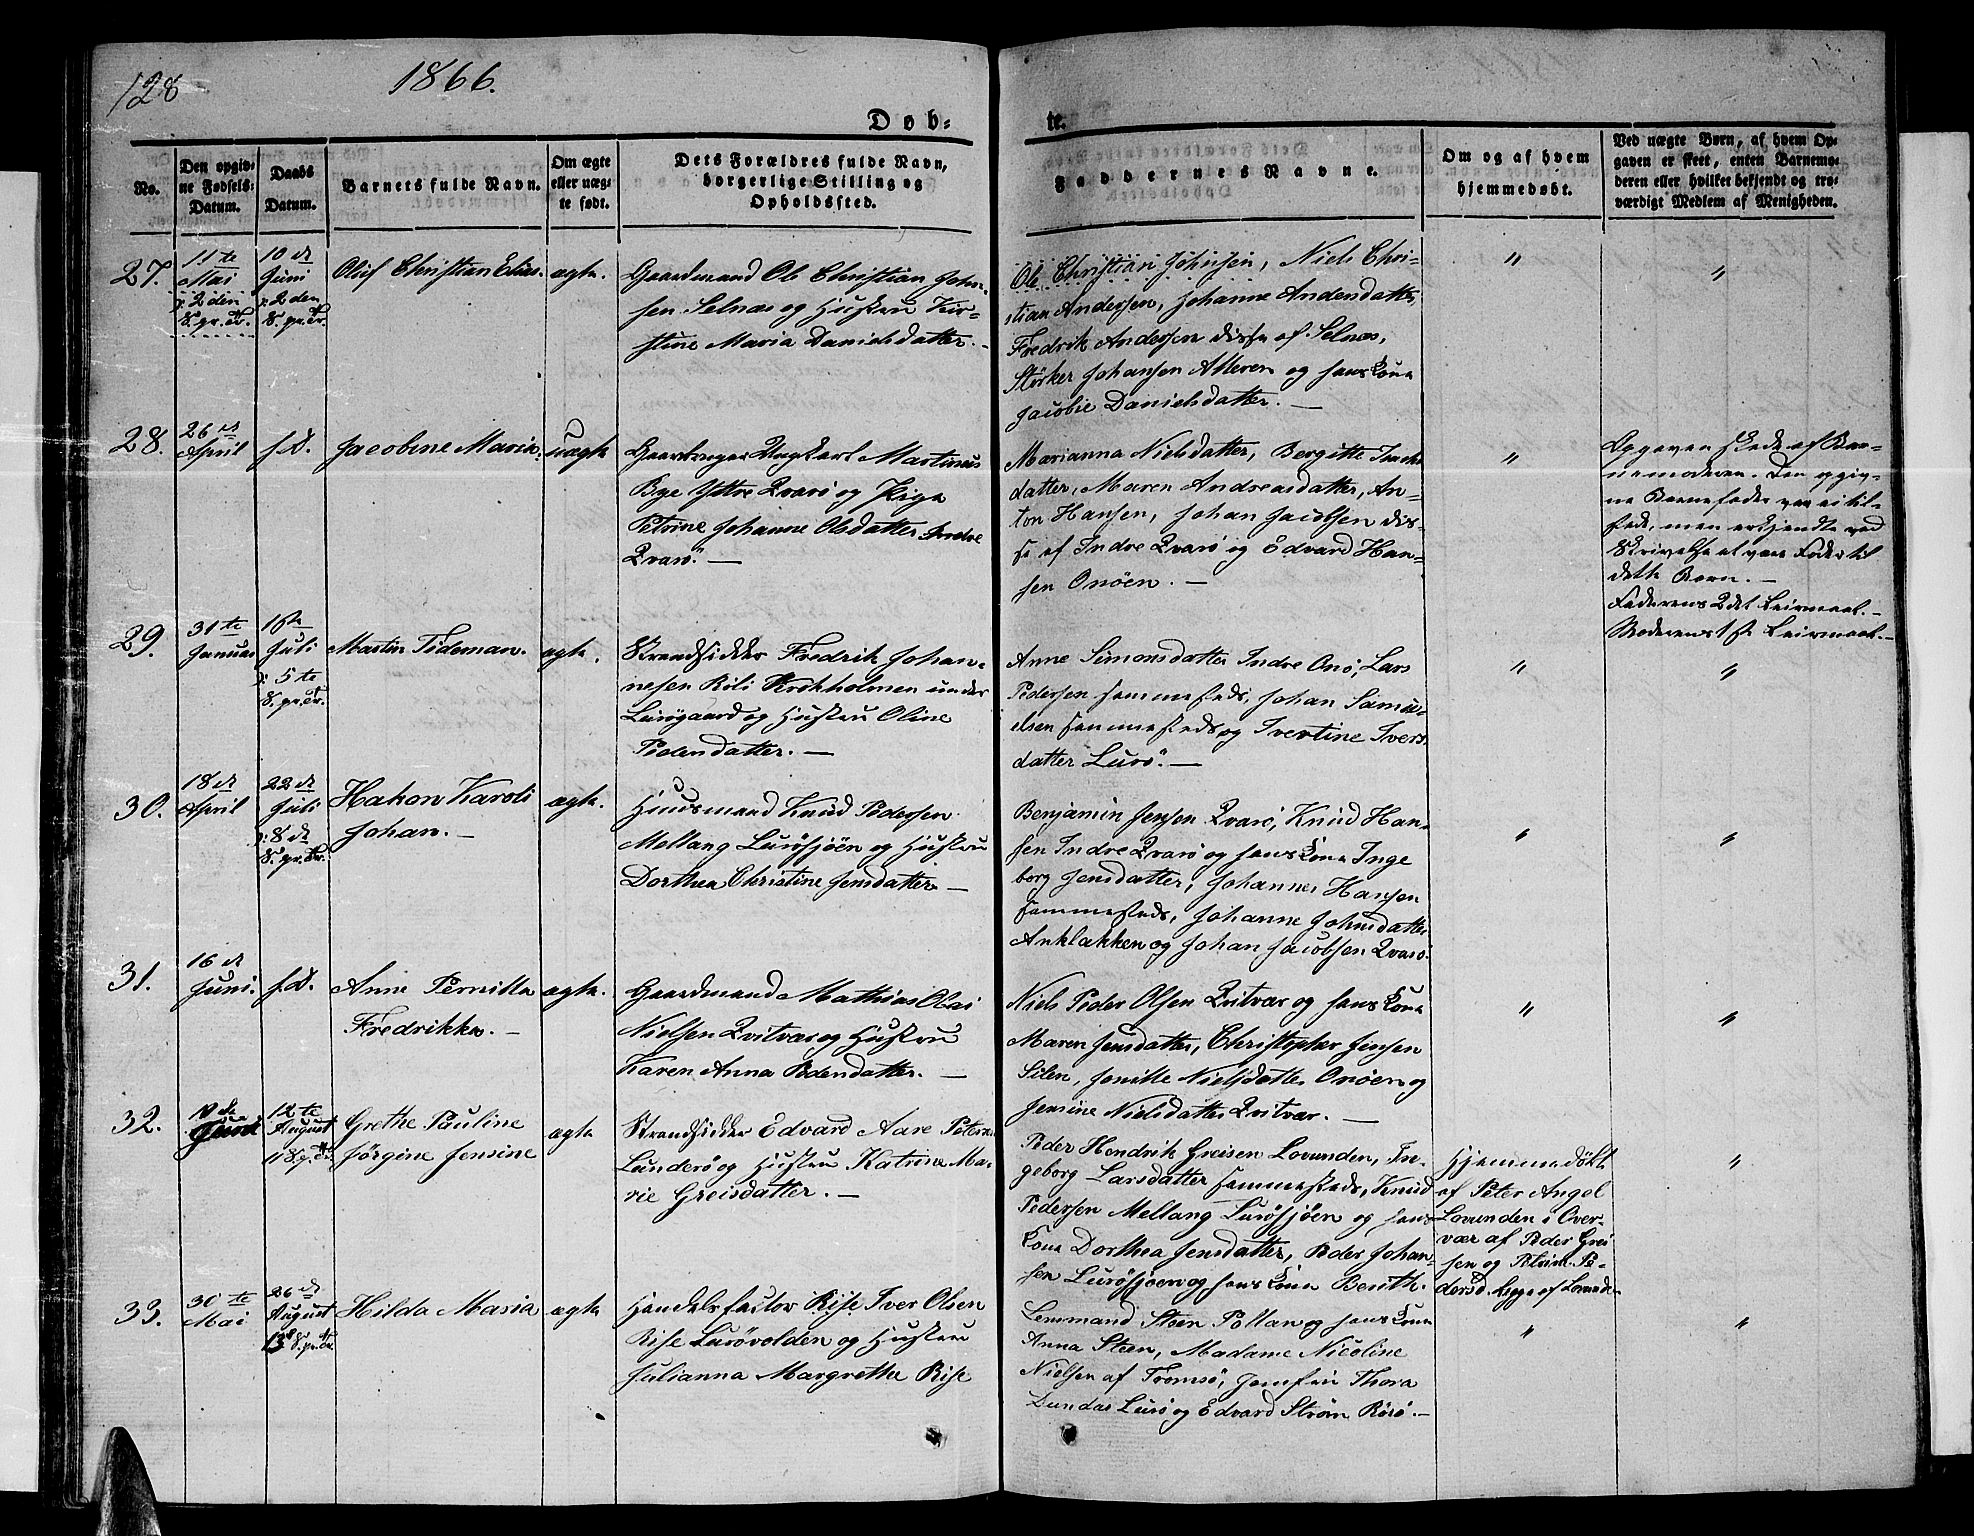 128
1866.
Dob=
te.
No.
Den opgiv=
ne Fødsels=
Datum.
Daabs
Datum.
Barnets fulde Navn.
Om ægte
eller uæg=
te født.
Dets Forældres fulde Navn,
borgerlige Stilling og
Opholdssted.
Faddernes Navne.
Om og af hvem
hjemmedøbt.
Ved uægte Børn, af hvem Op=
gaven er skeet, enten Barnemo=
deren eller hvilket bekjendt og tro=
værdigt Medlem af Menigheden.
27.
11te
Mai
10de
Juni
2den
S. p. Tr.
Oluf Christian Elias.
ægte.
Gaardmand Ole Christian John-
sen Selnæs og Hustru Kir-
stine Maria Danielsdatter. —
Ole Christian Johnsen, Niels Chri-
stian Andersen, Johanne Andersdatter,
Fredrik Andersen disse af Selnæs,
Størker Johansen Alteren og hans Kone
Jacobie Danielsdatter. —
"
"
28.
26de
April
f. D.
Jacobine Maria.
uægte
Gaardbruger Ungkarl Martinus
Bye Yttre Qvarø og Pige
Petrine Johanne Olsdatter Indre
Qvarø. —
Marianna Nielsdatter, Bergitte Isachs
datter, Maren Andreasdatter, An-
ton Hansen, Johan Jacobsen dis-
se af Indre Qvarø og Edvard Han-
sen Onöen. —
"
Opgaven skede af Bar-
nemoderen. Den opgiv-
ne Barnefader var ei til-
stede, men erkjendte ved
Skrivelse at være Fader til
dette Barn. —
Faderens 2det Leiermaal. —
Moderens 1ste Leiermaal. —
29.
31te
Januar
1ste
Juli
5te
S. p. Tr.
Martin Tideman.
ægte.
Strandsidder Fredrik Johan-
nesen Kirkholmen under
Lurøgaard og Hustru Oline
Pedersdatter. —
Anne Simonsdatter Indre Onø, Lars
Pedersen sammesteds, Johan Samu-
elsen sammesteds og Ivertine Ivers
datter Lurø. —
"
"
30.
18de
April
22de
Juli
8de
S. p. Tr.
Hakon Karoli
Johan. —
ægte.
Huusmand Knud Pedersen
Mellang Lurøsjøen og Hustru
Dorthea Christine Jensdatter —
Benjamin Jensen Qvarø, Knud Han-
sen Indre Qvarø og hans Kone Inge
borg Jensdatter, Johannes Hansen
sammesteds, Johanne Johnsdatter
Anklakken og Johan Jacobsen Qvarø.
"
"
31.
16de
Juni.
f. D.
Anne Pernilla
Fredrikke. —
ægte.
Gaardmand Mathias Obai
Nielsen Qvitvær og Hustru
Karen Anna Pedersdatter. —
Niels Peder Olsen Qvitvær og hans Kone
Maren Jensdatter, Christopher Jensen
Silen, Jonille Nielsdatter Onöen og
Jensine Nielsdatter Qvitvær. —
"
"
32.
12te
August
11 S. p. Tr.
Grethe Pauline
Jørgine Jensine
ægte
Strandsidder Edvard Aare Peters.
Lunderø og Hustru Katrine Ma-
rie Greisdatter. —
Peder Hendrik Greisen Lovunden, In-
geborg Larsdatter sammesteds, Knud
Pedersen Mellang Lurøsjøen og hans
Kone Dorthea Jensdatter, Peder Johan-
sen Lurøsjøen og hans Kone Berith.
Hjemmedøbt
af Peter Angel
Lovunden i Over-
vær af Peder Grei
sen og Petrine Pe-
dersd. begge af Lovunden
"
33.
30te
Mai
26de
August
13 S. p. Tr.
Hilda Maria
ægte
Handelsfactor Rise Iver Olsen
Rise Lurøvolden og Hustru
Julianna Margrethe Rise
Lensmand Steen Pollan og hans Kone
Anna Steen, Madame Nicoline
Nielsen af Tromsø, Jomfru Thora
Dundas Lurø og Edvard Strøm Rösø. —
"
"